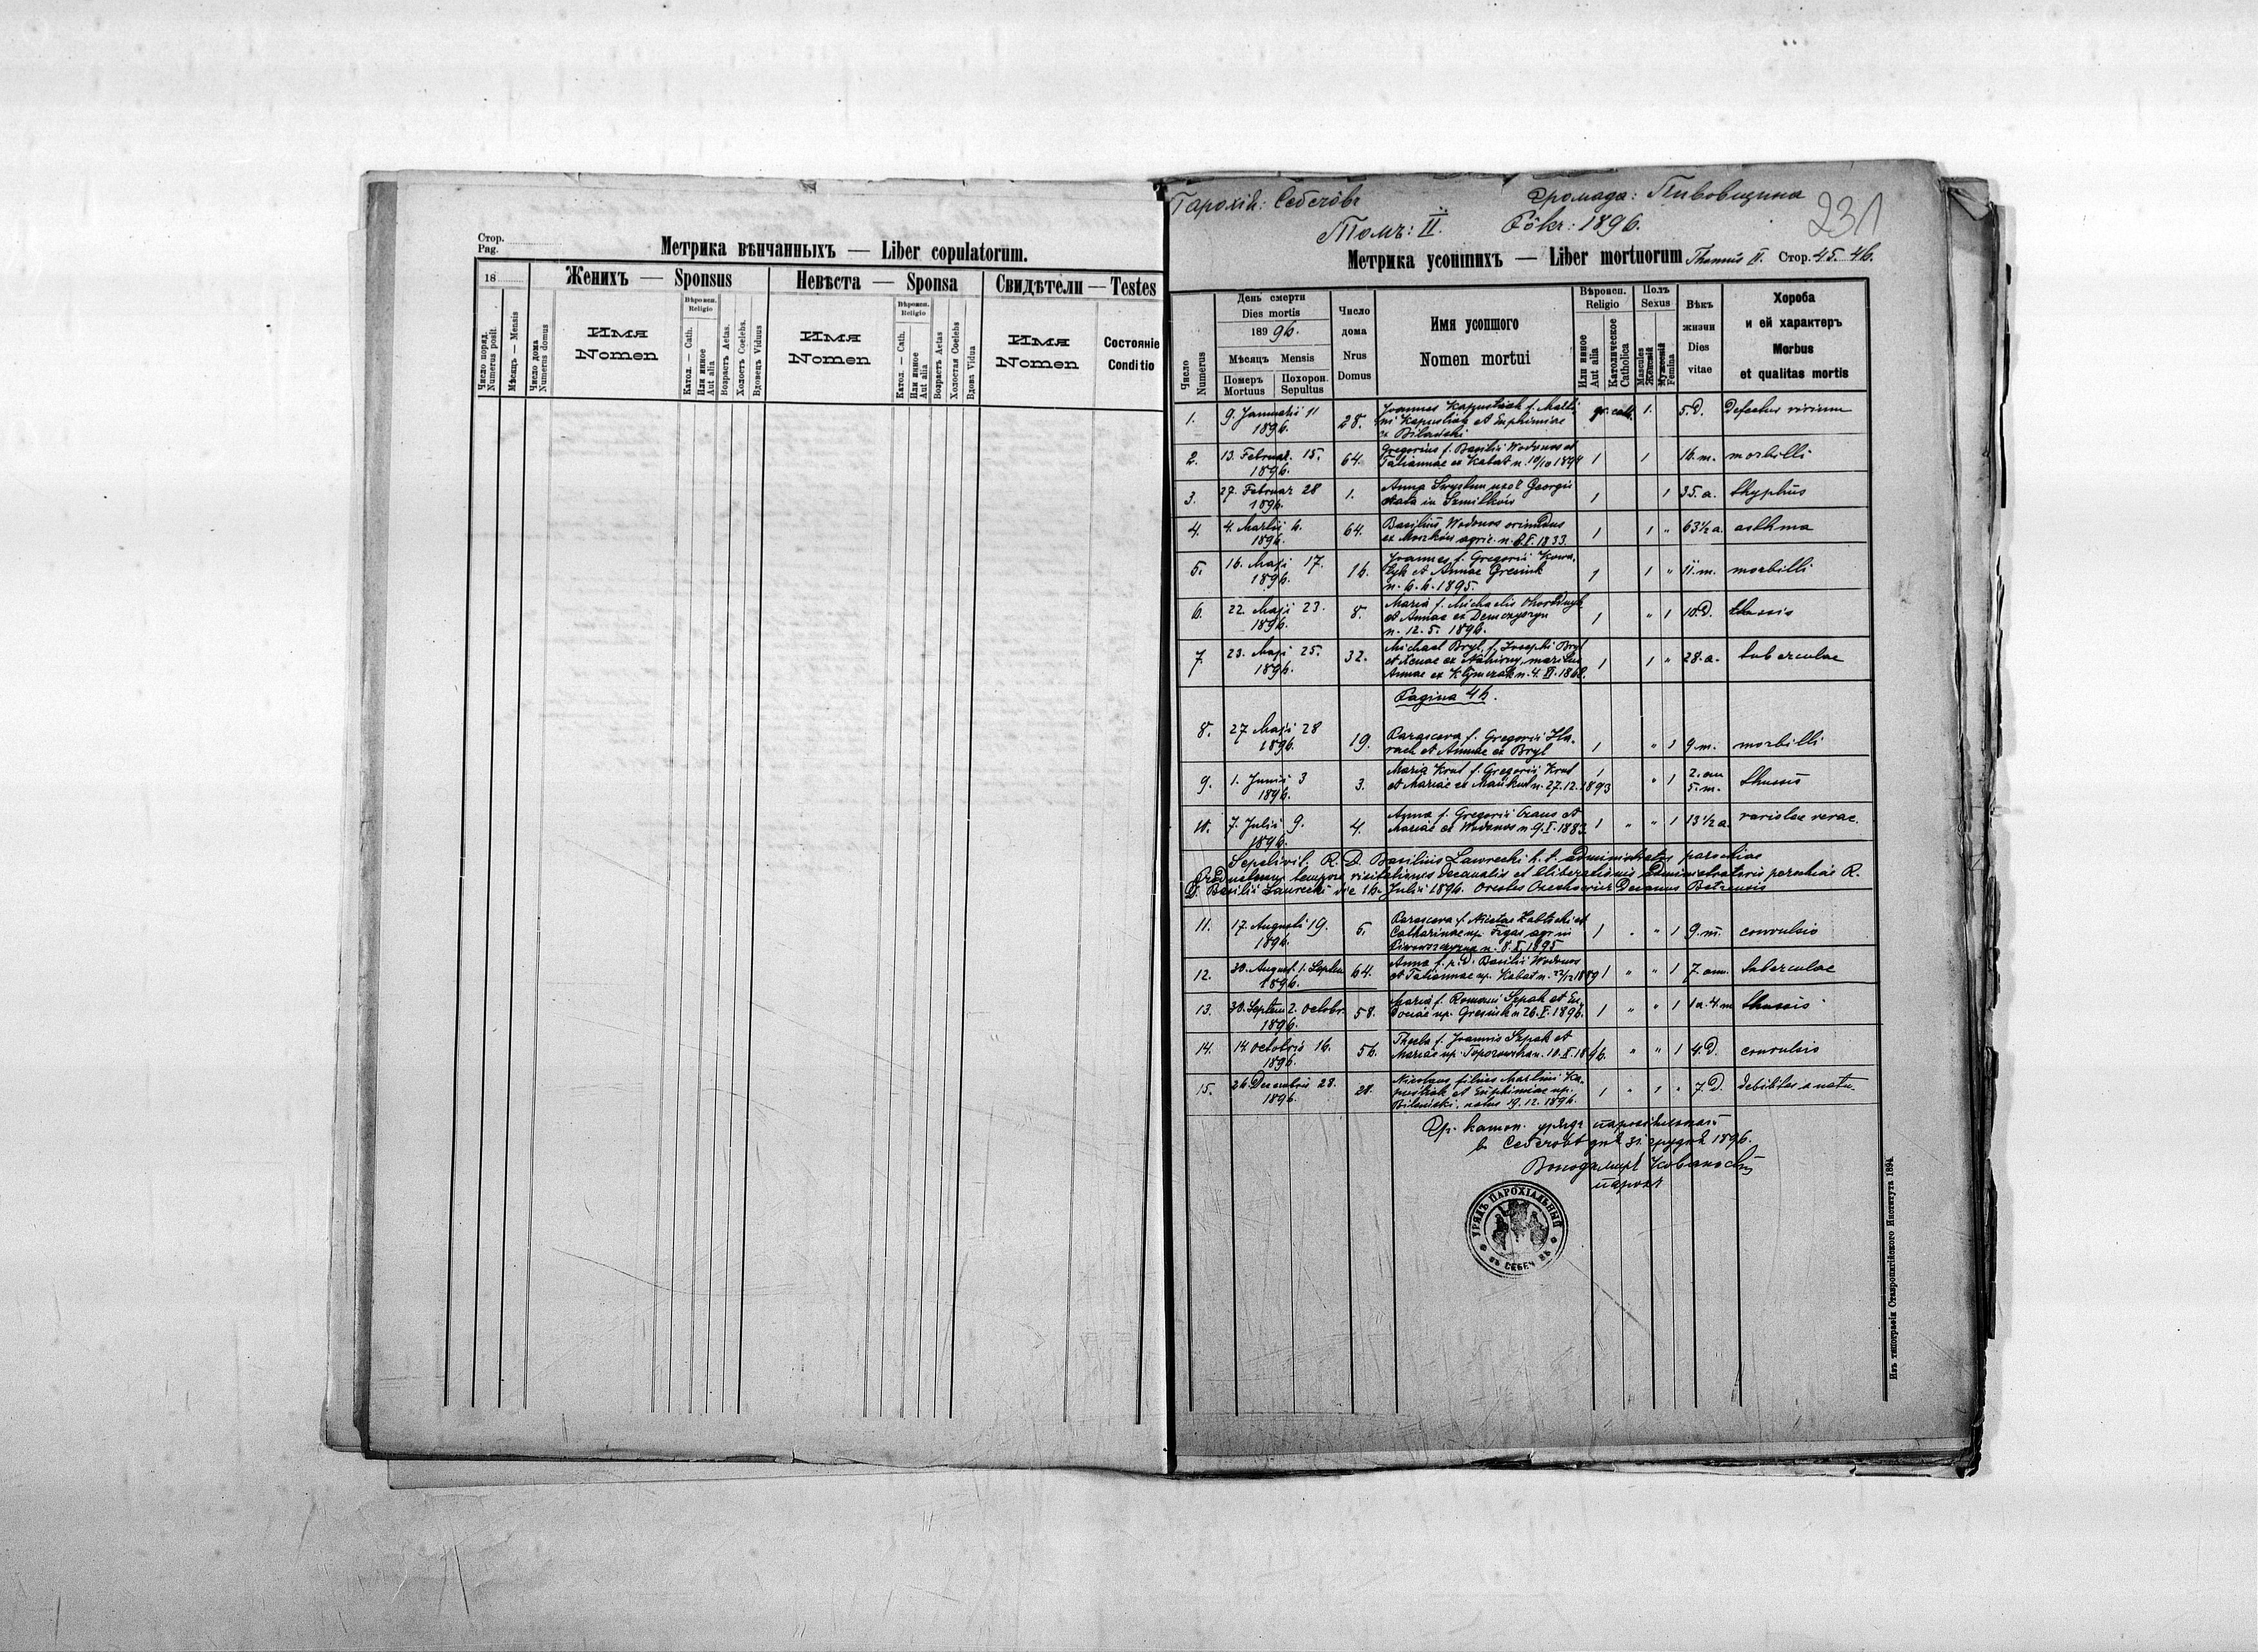 Стор.
Pag.
Метрика вѣнчанныхъ — Liber copulatorum.
18
Женихъ — Sponsus
Невѣста — Sponsa
Свидѣтели — Testes
Число поряд.
Numerus posit.
Мѣсяцъ — Mensis
Число дома
Numerus domus
Имя
Nomen
Вѣроисп.
Religio
Катол. — Cath.
Или иное
Aut alia
Возрастъ Aetas.
Холостъ Coelebs.
Вдовецъ Vidus
Имя
Nomen
Вѣроисп.
Religio
Катол. — Cath.
Или иное
Aut alia
Возрастъ Aetas
Холостая Coelebs
Вдова Vidua
Имя
Nomen
Состояніе
Conditio
Парохія: Себечôвъ
Громада: Пивовщина
231
Томъ: II.
Рôкъ: 1896.
Метрика усопшихъ — Liber mortuorum Thomus II. Стор. 45. 46.
Число
Numerus
День смерти
Dies mortis
1896.
Мѣсяцъ Mensis
Померъ
Mortuus
Похорон.
Sepultus
Число
дома
Nrus
Domus
Имя усопшого
Nomen mortui
Вѣроисп.
Religio
Или иное
Aut alia
Католическое
Catholica
Полъ
Sexus
Mascules
Женскій
Мужескій
Femina
Вѣкъ
жизни
Dies
vitae
Хороба
и ей характеръ
Morbus
et qualitas mortis
1. 9. Januarii 11 28. Joannes Kapustiak f. Marti- gr. cath. 1. 5. D. Defectus virium
1896. ni Kapustiak et Euphimiae
ex Bilanski
2. 13. Februar. 15. 64. Gregorius f. Basilii Wodonos et 1 1 16. m. morbilli
1896. Tatiannae ex Kabat n. 10/10 1894
3. 27. Februar 28 1. Anna uxor Georgii 1 1 35. a. thyphus
1896. nata in
4. 4. Martii 6. 64. Basilius Wodonos oriundus 1 1 " 63 1/2 a. asthma
1896. ex agric. n. 1833.
5. 16. Maji 17. 16. Joannes f. Gregorii Kowa- 1 1 " 11. m. morbilli
1896. lyk et Annae Gresiuk
n. 6. 6. 1895.
6. 22. Maji 23. 8. Maria f. Michaelis 1 " 1 10. D. thussis
1896. et Annae ex
n. 12. 5. 1896.
7. 23. Maji 25. 32. Michael Bryl f. Josephi Bryl 1 1 " 28. a. tuberculae
1896. et ex maritus
Annae ex n. 4. XI. 1868.
Pagina 46.
8. 27 Maji 28 19. Parasceva f. Gregorii Hla- 1 " 1 9. m. morbilli
1896. et Annae ex Bryl
9. 1. Junii 3 3. Maria Krul f. Gregorii Krul 1 " 1 2. an thussis
1896. et Mariae ex n. 27. 12. 1893 5. m.
10. 7. Julii 9. 4. Anna f. Gregorii et 1 " " 1 13 1/2 a. variolae verae.
1896. Mariae ex Wodonos n. 9. I. 1883.
Sepelivit: R. D. Basilius Lawrecki h. t. administrator parochiae
tempore visitationis decanalis et liberationis administratoris parochiae R.
D. Basilii Lawrecki die 16. Julii 1896. Orestes Decanus
11. 17. Augusti 19. 6. Parasceva f. Nicetae et 1 " " 1 9. m. convulsio
1896. Catharinae np. Figas agr. in
n. 8. X. 1895
12. 30. August. 1. Septem. 64. Anna f. p. d. Basilii Wodonos 1 " " 1 7. ann. tuberculae
1896. et Tatiannae np. Kabat n. 22/12 1889
13. 30. Septem. 2. octobr. 58. Maria f. Romani Szpak et Eu- 1 " " 1 1 a. 4. m thussis
1896. dociae np. Gresiuk n. 26. V. 1896.
14. 14. octobris 16. 56. Thecla f. Joannis Szpak et 1 " " 1 4. D. convulsio
1896. Mariae np. n. 10. X. 1896.
15. 26 Decembris 28. 28. Nicolaus filius Martini Ka- 1 " 1 " 7. D. debilitas a natu.
1896. pustiak et Euphimiae np.
Bilanski, natus 19. 12. 1896.
Гр. катол. урядъ парохіяльный
в Себечовѣ дня 31. грудня 1896.
парохъ
УРЯДЪ ПАРОХІАЛЬНЫЙ
ВЪ СЕБЕЧ ВѢ
Изъ типографіи Ставропигійского Института 1894.